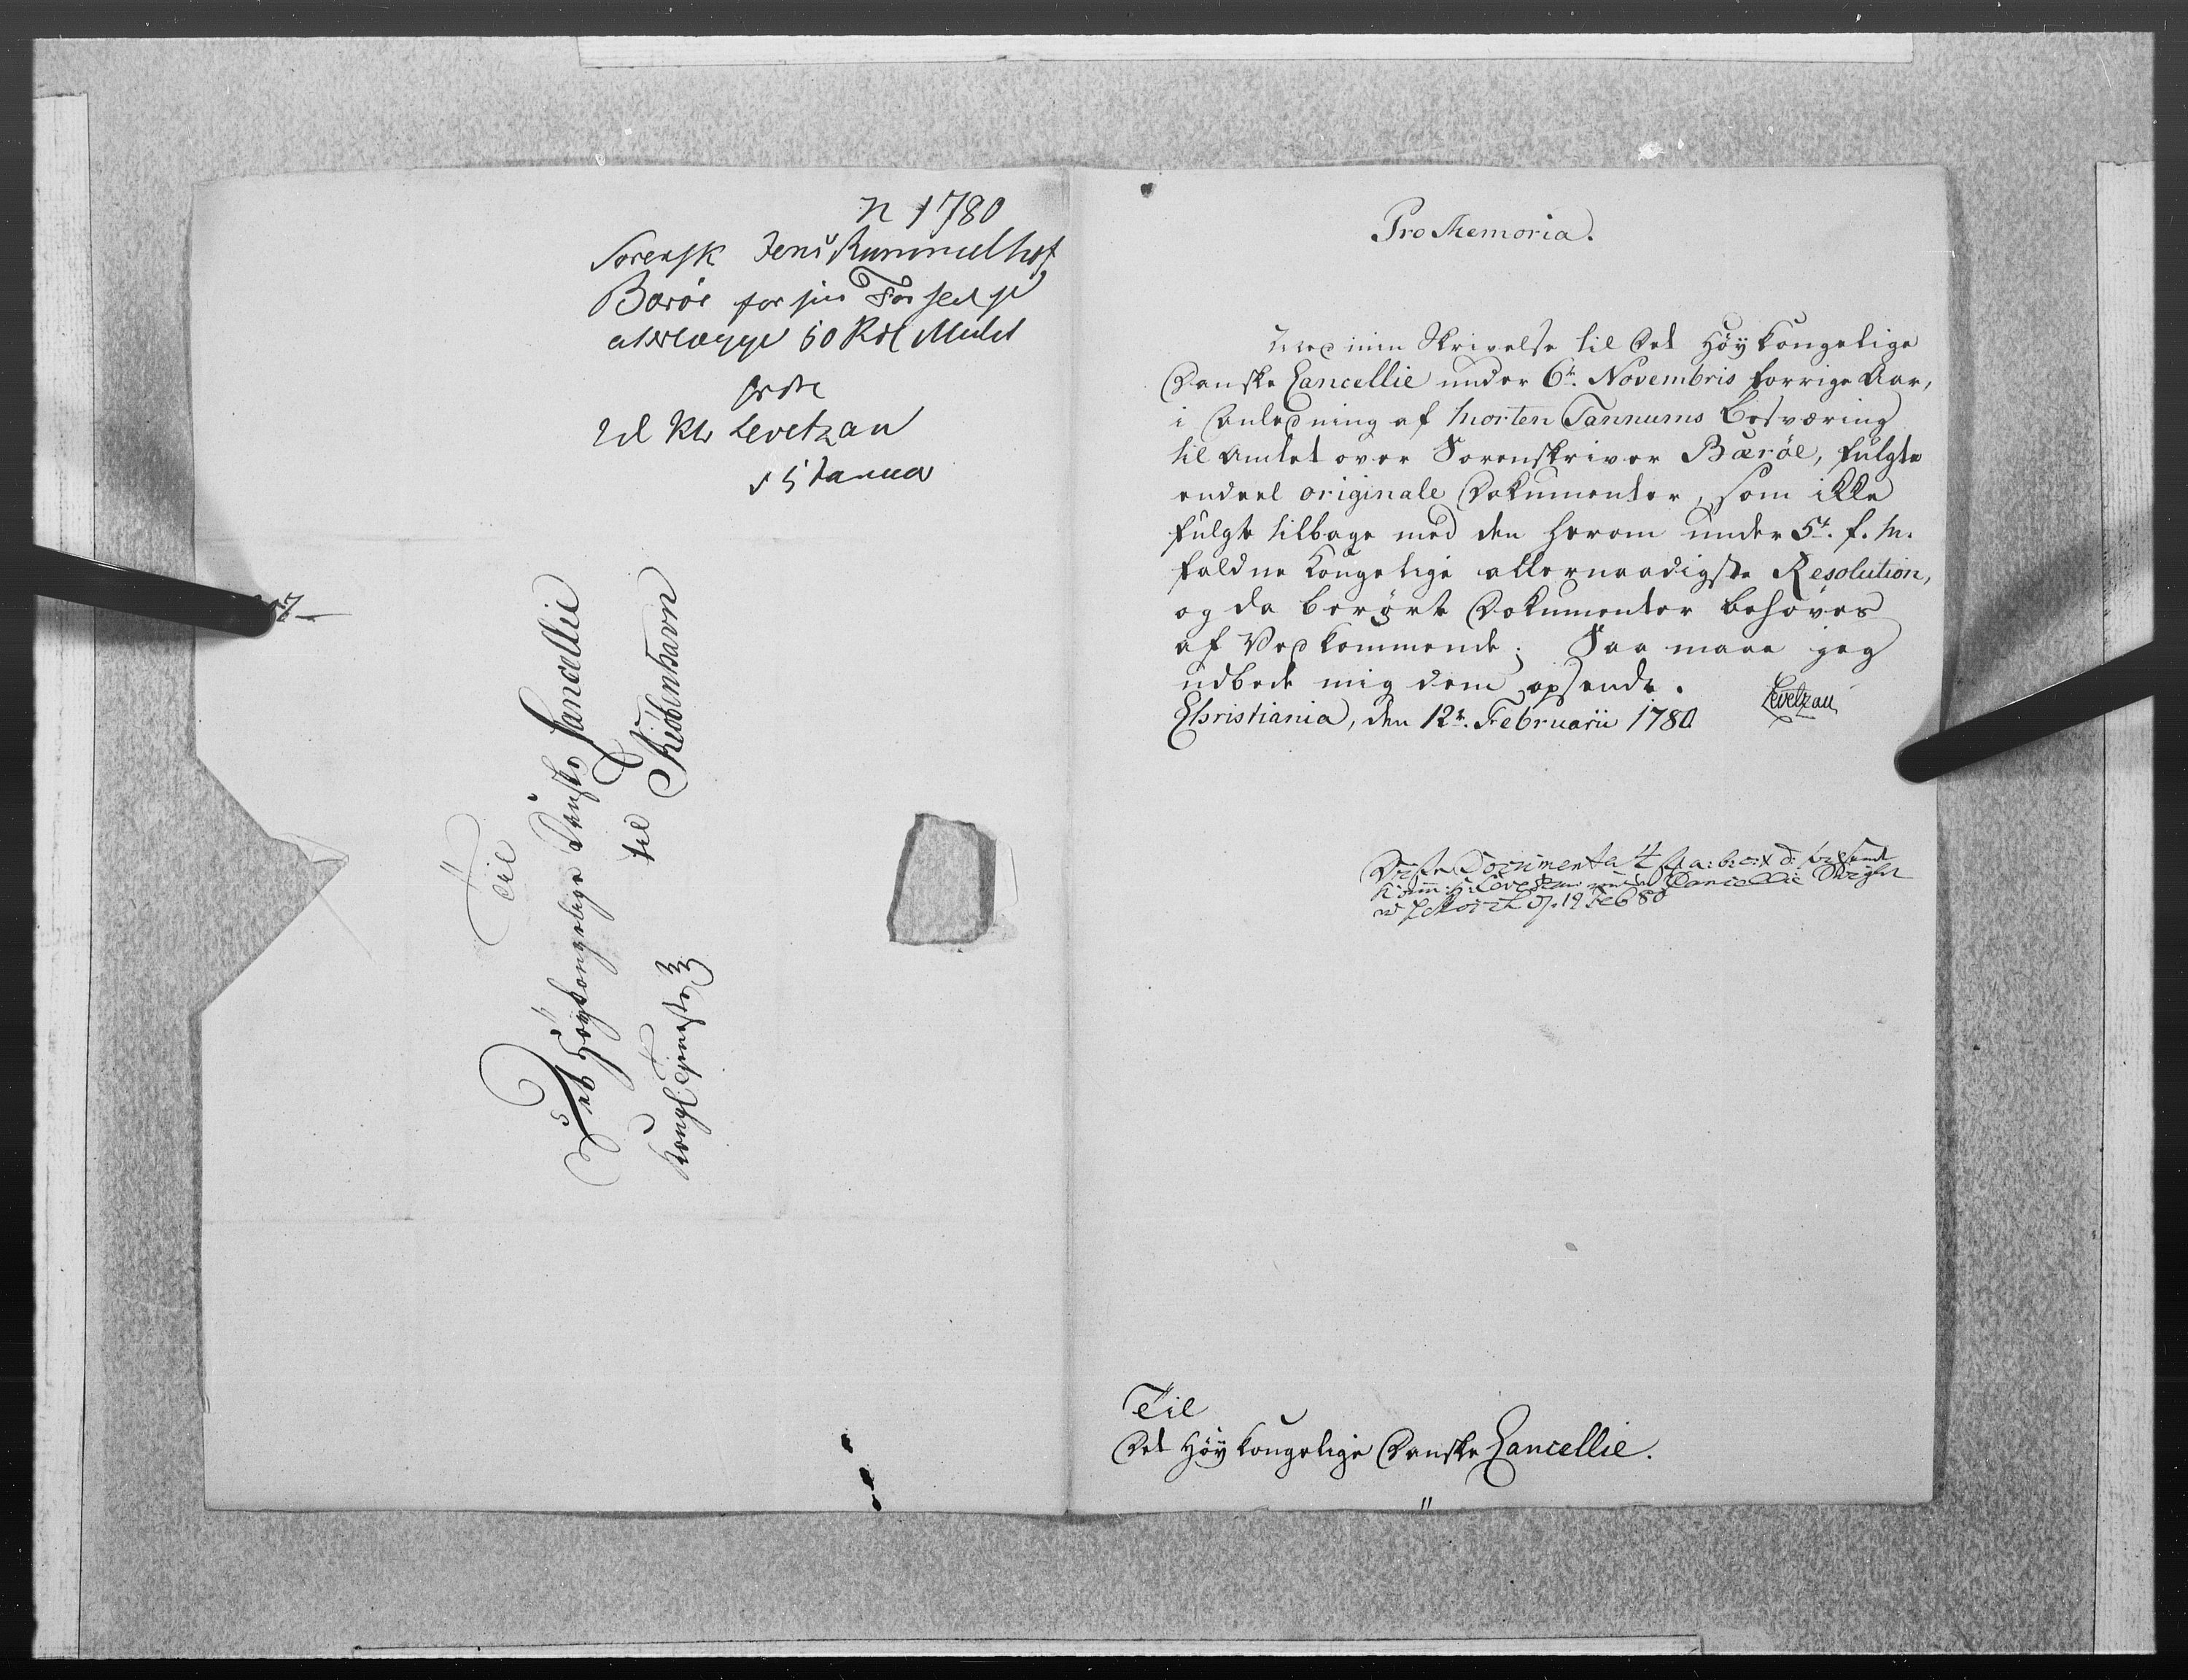 n 1780
Sorensk Jens Rummelhof
Borøe for sin Forseelse
at erlægge 50 Rdl Mulct
Ordre
til Kh Levetzau
d 5 Januar
Til
Det Høykongelige Danske Cancellie
til Kiøbenhavn
Kongl Tjeneste
Pro Memoria.
Med min Skrivelse til Det Høykongelige
Danske Cancellie under 6te. Novembris forrige Aar,
i Anledning af Morten Tannums Besværing
til Amtet over Sorenskriver Bærøe, fulgte
endeel originale Dokumenter, som ikke
fulgte tilbage med den herom under 5t. f. M.
faldne Kongelige allernaadigste Resolution,
og da berørte Dokumenter behøves
af Vedkommende; Saa maae jeg
udbede mig dem opsendte.
Christiania, den 12t. Februarii 1780
Levetzau
Disse Documenta 4 St a: b: c: & d:
H: Levetzau Cancellie
19 Feb 80
Til
Det Høykongelige Danske Cancellie.